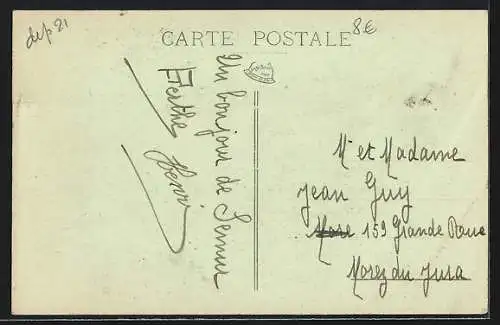 dep 21
8€
CARTE POSTALE
Un bonjour de Semur
Berthe
Henri
Mr et Madame
Jean Guy
More 159 Grande Rue
Morez du Jura